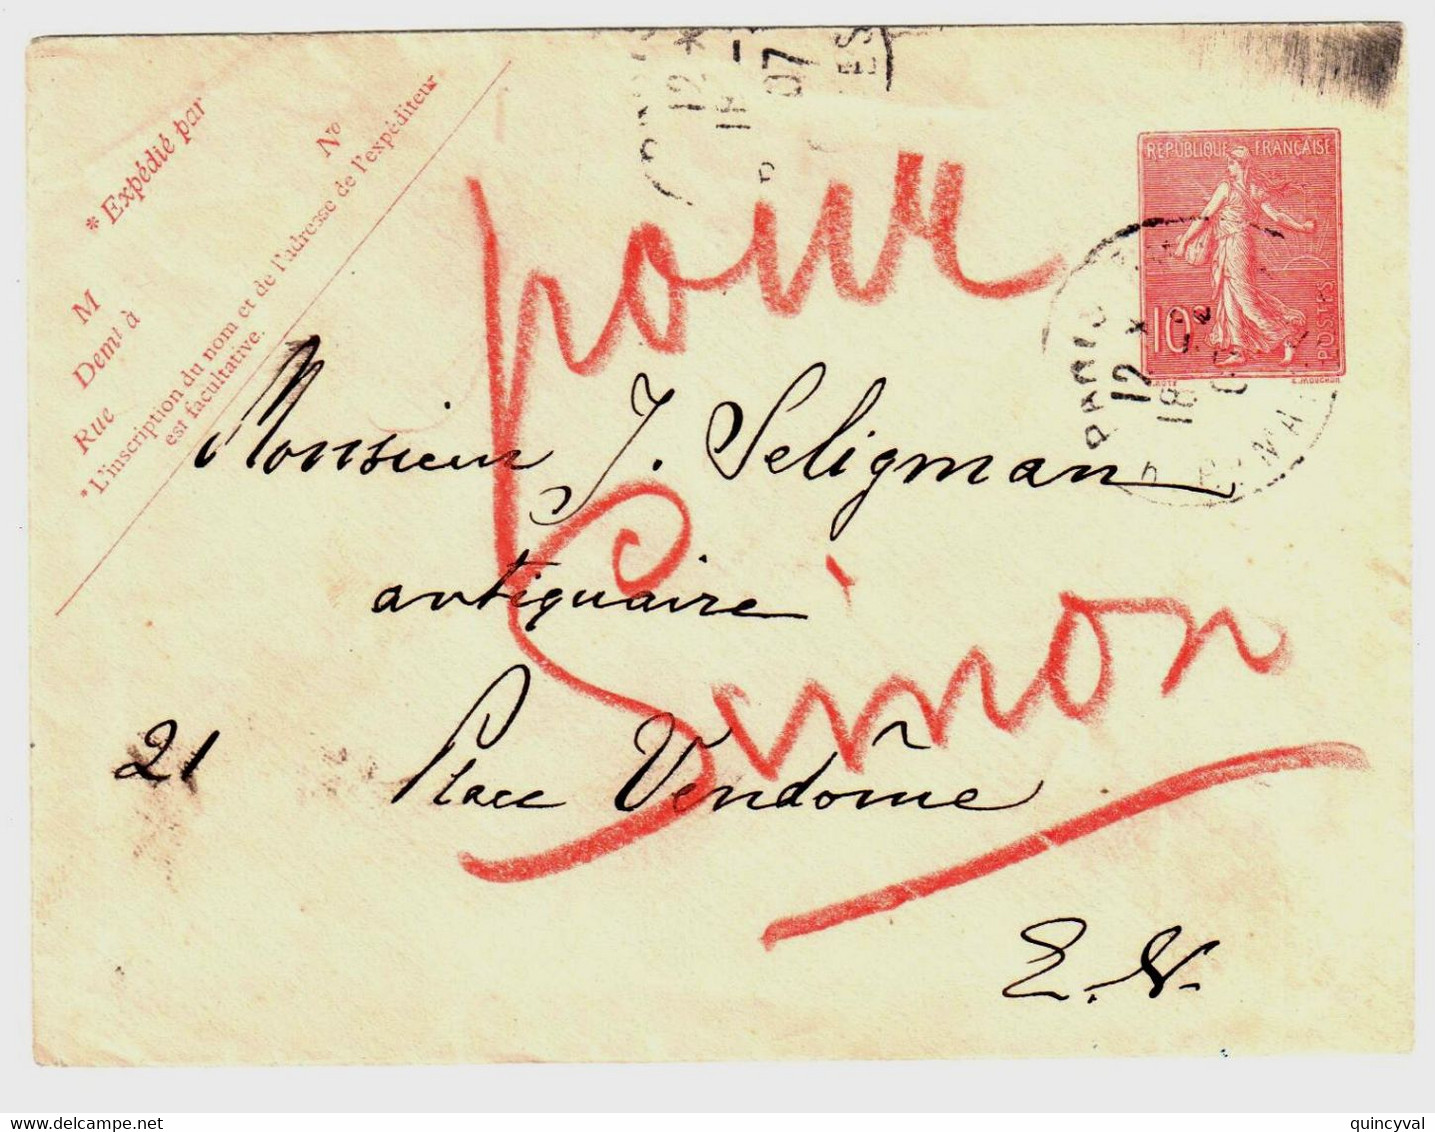 * Expédié par
M
Demt à
Rue
No
* L'inscription du nom et de l'adresse de l'expéditeur
est facultative.
12 *
07
ES
RÉPUBLIQUE FRANÇAISE
10c
POSTES
O. ROTY
E. MOUCHON
PARIS
12 *
18
pour
Simon
Monsieur J. Seligman
antiquaire
21 Place Vendôme
E.V.
delcampe.net
quincyval